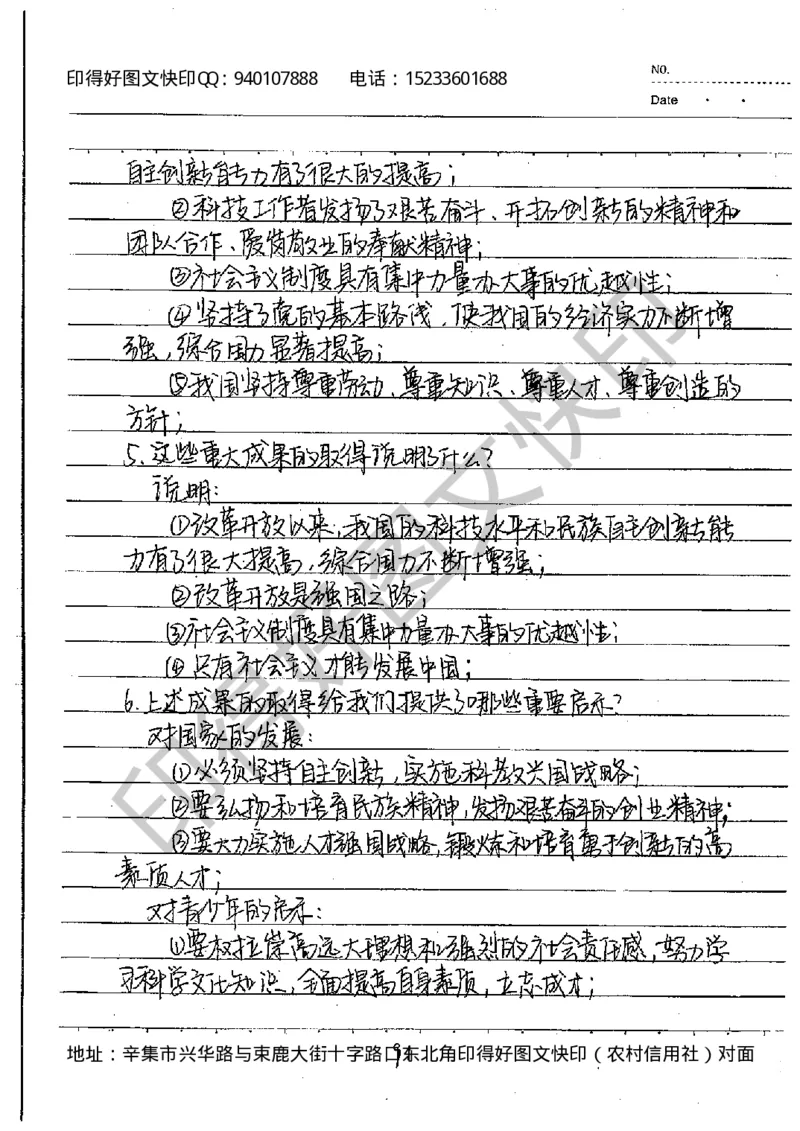 印得好图文快印QQ：940107888 电话：15233601688
NO.
Date
自主创新能力有了很大的提高；
②科技工作者发扬了艰苦奋斗、开拓创新的精神和
团队合作、爱岗敬业的奉献精神；
③社会主义制度具有集中力量办大事的优越性；
④坚持了党的基本路线，使我国的经济实力不断增
强，综合国力显著提高；
⑤我国坚持尊重劳动、尊重知识、尊重人才、尊重创造的
方针；
5、这些重大成果的取得说明了什么？
说明：
①改革开放以来，我国的科技水平和民族自主创新能
力有了很大提高，综合国力不断增强；
②改革开放是强国之路；
③社会主义制度具有集中力量办大事的优越性；
④只有社会主义才能发展中国；
6、上述成果的取得给我们提供了哪些重要启示？
对国家的发展：
①必须坚持自主创新，实施科教兴国战略；
②要弘扬和培育民族精神，发扬艰苦奋斗的创业精神；
③要大力实施人才强国战略，锻炼和培育勇于创新的高
素质人才；
对青少年的启示：
①要树立崇高远大理想和强烈的社会责任感，努力学
习科学文化知识，全面提高自身素质，立志成才；
地址：辛集市兴华路与束鹿大街十字路口东北角印得好图文快印（农村信用社）对面
9
印得好图文快印